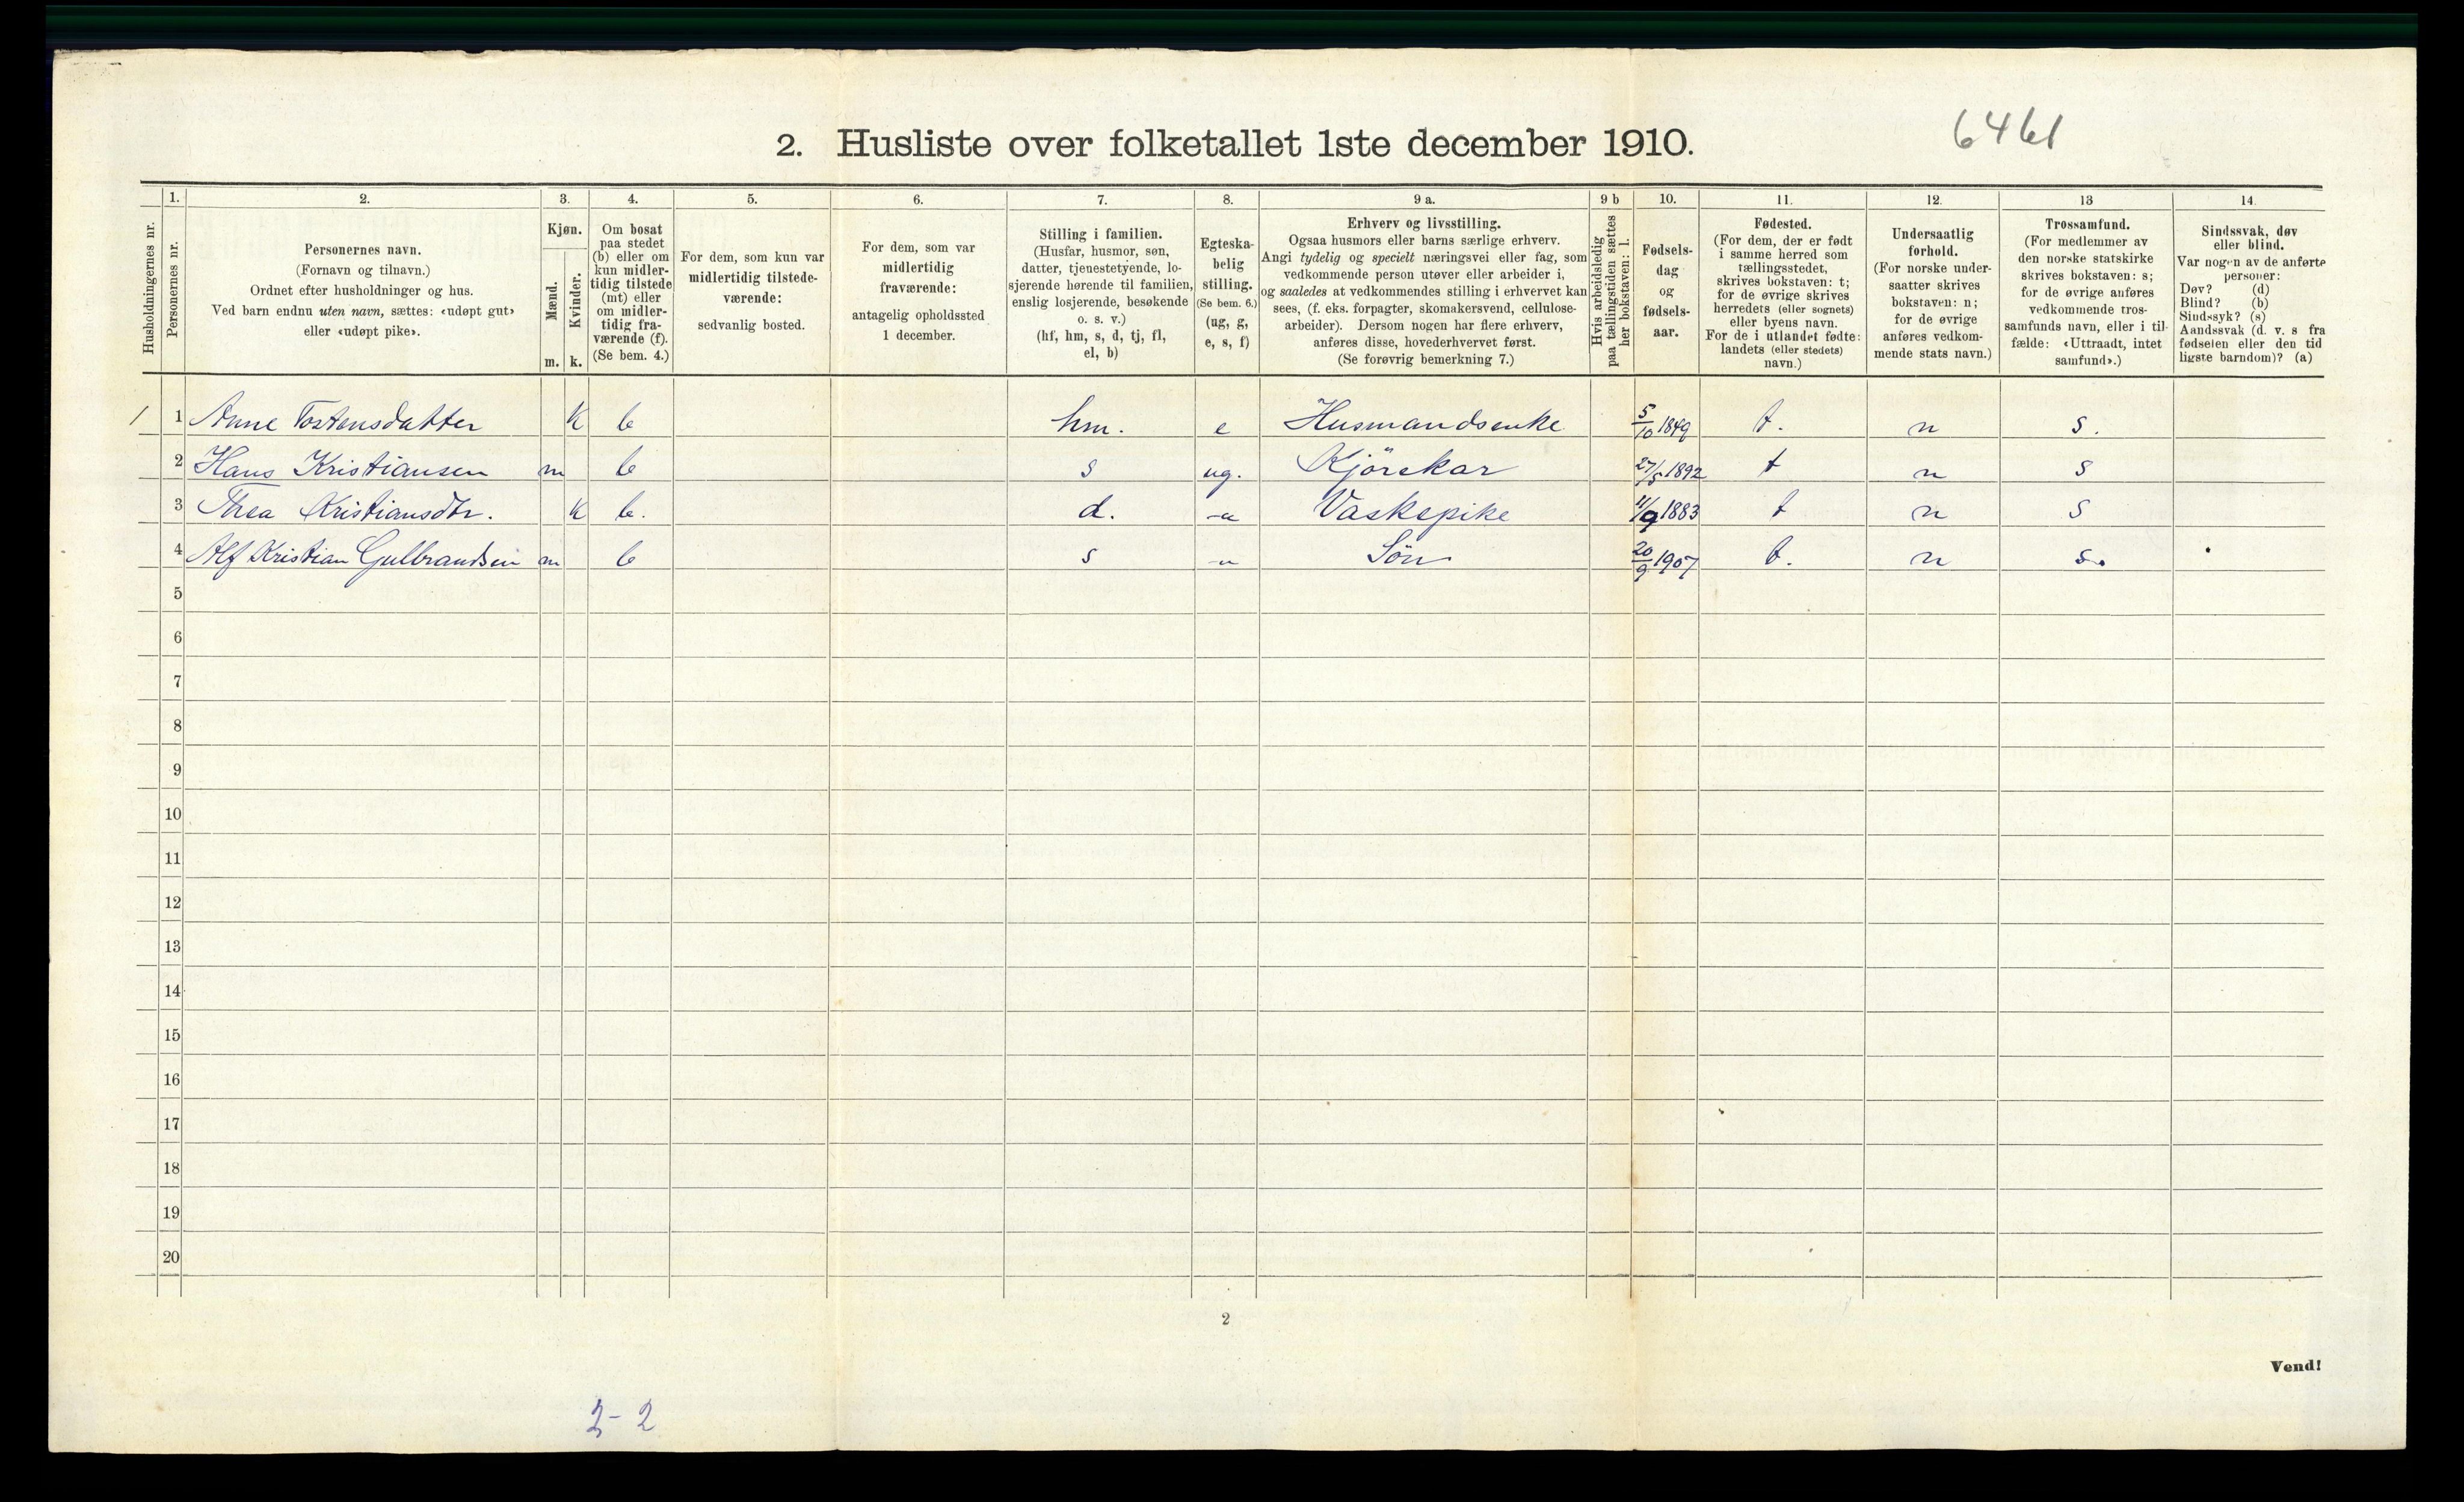 6461
2. Husliste over folketallet 1ste december 1910.
Husholdningernes nr.
1.
Personernes nr.
2.
Personernes navn.
(Fornavn og tilnavn.)
Ordnet efter husholdninger og hus.
Ved barn endnu uten navn, sættes: «udøpt gut»
eller «udøpt pike».
3.
Kjøn.
Mænd.
m.
Kvinder.
k.
4.
Om bosat
paa stedet
(b) eller om
kun midler-
tidig tilstede
(mt) eller
om midler-
tidig fra-
værende (f).
(Se bem. 4.)
5.
For dem, som kun var
midlertidig tilstede-
værende:
sedvanlig bosted.
6.
For dem, som var
midlertidig
fraværende:
antagelig opholdssted
1 december.
7.
Stilling i familien.
(Husfar, husmor, søn,
datter, tjenestetyende, lo-
sjerende hørende til familien,
enslig losjerende, besøkende
o. s. v.)
(hf, hm, s, d, tj, fl,
el, b)
8.
Egteska-
belig
stilling.
(Se bem. 6.)
(ug, g,
e, s, f)
9 a.
Erhverv og livsstilling.
Ogsaa husmors eller barns særlige erhverv.
Angi tydelig og specielt næringsvei eller fag, som
vedkommende person utøver eller arbeider i,
og saaledes at vedkommendes stilling i erhvervet kan
sees, (f. eks. forpagter, skomakersvend, cellulose-
arbeider). Dersom nogen har flere erhverv,
anføres disse, hovederhvervet først.
(Se forøvrig bemerkning 7.)
9 b
Hvis arbeidsledig
paa tællingstiden sættes
her bokstaven: l.
10.
Fødsels-
dag
og
fødsels-
aar.
11.
Fødested.
(For dem, der er født
i samme herred som
tællingsstedet,
skrives bokstaven: t;
for de øvrige skrives
herredets (eller sognets)
eller byens navn.
For de i utlandet fødte:
landets (eller stedets)
navn.)
12.
Undersaatlig
forhold.
(For norske under-
saatter skrives
bokstaven: n;
for de øvrige
anføres vedkom-
mende stats navn.)
13
Trossamfund.
(For medlemmer av
den norske statskirke
skrives bokstaven: s;
for de øvrige anføres
vedkommende tros-
samfunds navn, eller i til-
fælde: «Uttraadt, intet
samfund».)
14.
Sindssvak, døv
eller blind.
Var nogen av de anførte
personer:
Døv? (d)
Blind? (b)
Sindssyk? (s)
Aandssvak (d. v. s fra
fødselen eller den tid
ligste barndom)? (a)
1 1 Anne Tostensdatter k b hm. e Husmandsenke 5/10 1849 t. n s.
2 Hans Kristiansen m b s ug. Kjörekar 27/5 1892 t n s
3 Thea Kristiansdtr. k b. d. -"- Vaskepike 11/9 1883 t n s
4 Alf Kristian Gulbrandsen m b s -"- Sön 20/9 1907 t. n s.
5
6
7
8
9
10
11
12
13
14
15
16
17
18
19
20
2
Vend!
2-2